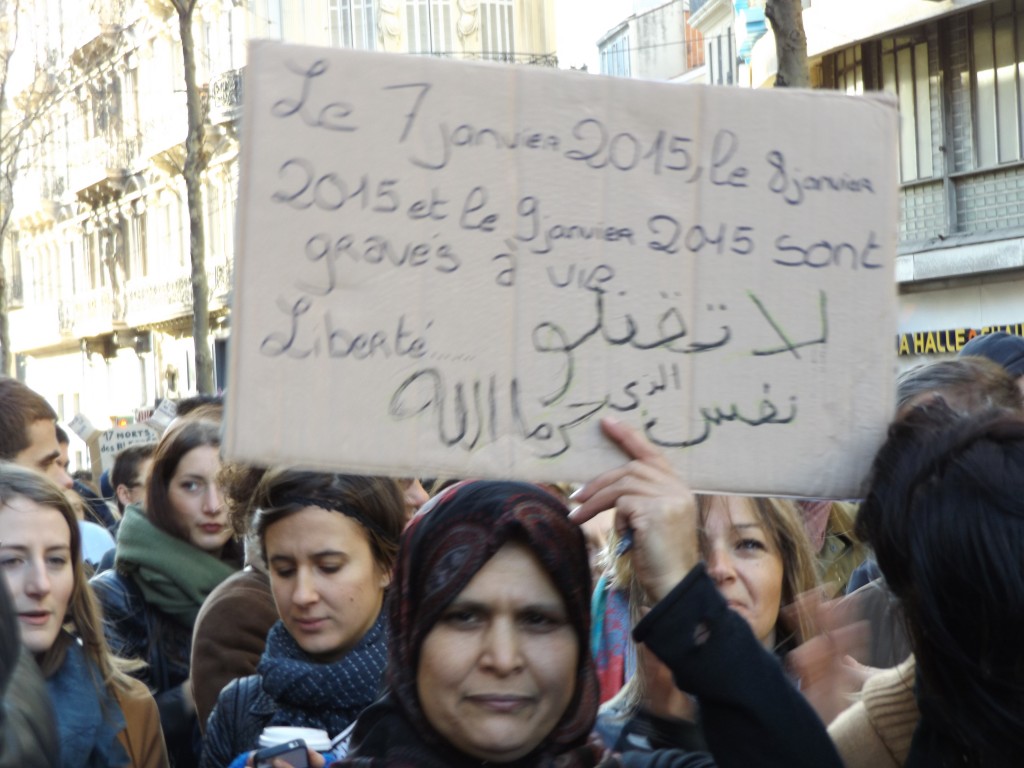 Le 7 janvier 2015, le 8 janvier
2015 et le 9 janvier 2015 sont
gravés à vie
Liberté...... لا تقتلو
نفس الذي حرما الله
A HALLE
17 MORTS
des